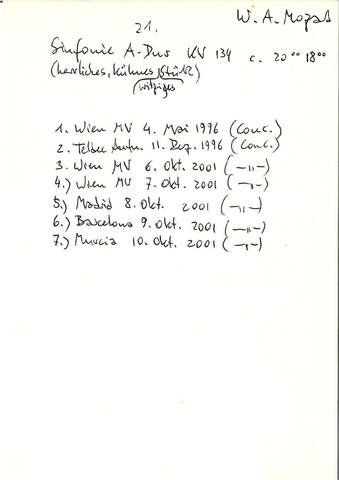 21.
W. A. Mozart
Sinfonie A-Dur KV 134 c. 20°° 18°°
(herrliches, kühnes, Stück)
witziges
1. Wien MV 4. Mai 1996 (Conc.)
2. 11. Dez. 1996 (Conc.)
3. Wien MV 6. Okt. 2001 (—"—)
4.) Wien MV 7. Okt. 2001 (—"—)
5.) Madrid 8. Okt. 2001 (—"—)
6.) Barcelona 9. Okt. 2001 (—"—)
7.) Murcia 10. Okt. 2001 (—"—)